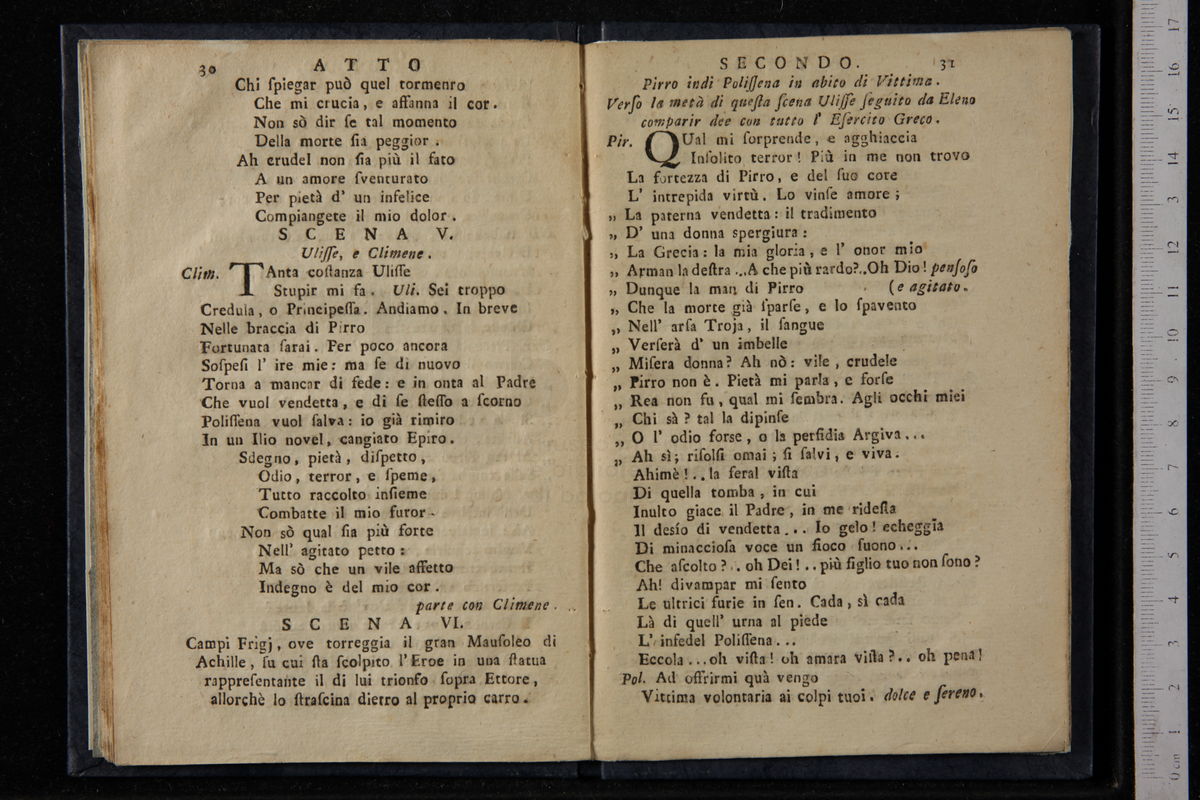 30 ATTO
Chi ſpiegar può quel tormenro
Che mi crucia, e affanna il cor.
Non sò dir ſe tal momento
Della morte ſia peggior.
Ah crudel non ſia più il fato
A un amore ſventurato
Per pietà d' un infelice
Compiangete il mio dolor.
SCENA V.
Uliſſe, e Climene.
Clim. TAnta coſtanza Uliſſe
Stupir mi fa. Uli. Sei troppo
Credula, o Principeſſa. Andiamo. In breve
Nelle braccia di Pirro
Fortunata ſarai. Per poco ancora
Soſpeſi l' ire mie: ma ſe di nuovo
Torna a mancar di fede: e in onta al Padre
Che vuol vendetta, e di ſe ſteſſo a ſcorno
Poliſſena vuol ſalva: io già rimiro
In un Ilio novel, cangiato Epiro.
Sdegno, pietà, diſpetto,
Odio, terror, e ſpeme,
Tutto raccolto inſieme
Combatte il mio furor.
Non sò qual ſia più forte
Nell' agitato petto:
Ma sò che un vile affetto
Indegno è del mio cor.
parte con Climene.
SCENA VI.
Campi Frigj, ove torreggia il gran Mauſoleo di
Achille, ſu cui ſta ſcolpito l'Eroe in una ſtatua
rappreſentante il di lui trionfo ſopra Ettore,
allorchè lo ſtraſcina dietro al proprio carro.
SECONDO. 31
Pirro indi Poliſſena in abito di Vittima.
Verſo la metà di queſta ſcena Uliſſe ſeguito da Eleno
comparir dee con tutto l' Eſercito Greco.
Pir. QUal mi ſorprende, e agghiaccia
Inſolito terror! Più in me non trovo
La fortezza di Pirro, e del ſuo core
L' intrepida virtù. Lo vinſe amore;
„ La paterna vendetta: il tradimento
„ D' una donna spergiura:
„ La Grecia: la mia gloria, e l' onor mio
„ Arman la deſtra ... A che più rardo?..Oh Dio! penſoſo
„ Dunque la man di Pirro (e agitato.
„ Che la morte già ſparſe, e lo ſpavento
„ Nell' arſa Troja, il ſangue
„ Verſerà d' un imbelle
„ Miſera donna? Ah nò: vile, crudele
„ Pirro non è. Pietà mi parla, e forſe
„ Rea non fu, qual mi ſembra. Agli occhi miei
„ Chi sà? tal la dipinſe
„ O l' odio forse, o la perfidia Argiva...
„ Ah sì; riſolſi omai; ſi ſalvi, e viva.
Ahimè!.. la feral viſta
Di quella tomba, in cui
Inulto giace il Padre, in me rideſta
Il desío di vendetta... Io gelo! echeggia
Di minaccioſa voce un fioco ſuono...
Che aſcolto?.. oh Dei!.. più figlio tuo non ſono?
Ah! divampar mi ſento
Le ultrici furie in ſen. Cada, sì cada
Là di quell' urna al piede
L' infedel Poliſſena...
Eccola... oh viſta! oh amara viſta?.. oh pena!
Pol. Ad offrirmi quà vengo
Vittima volontaria ai colpi tuoi. dolce e ſereno.
17
16
15
14
3
12
11
10
9
8
7
6
5
4
3
2
1
0 cm